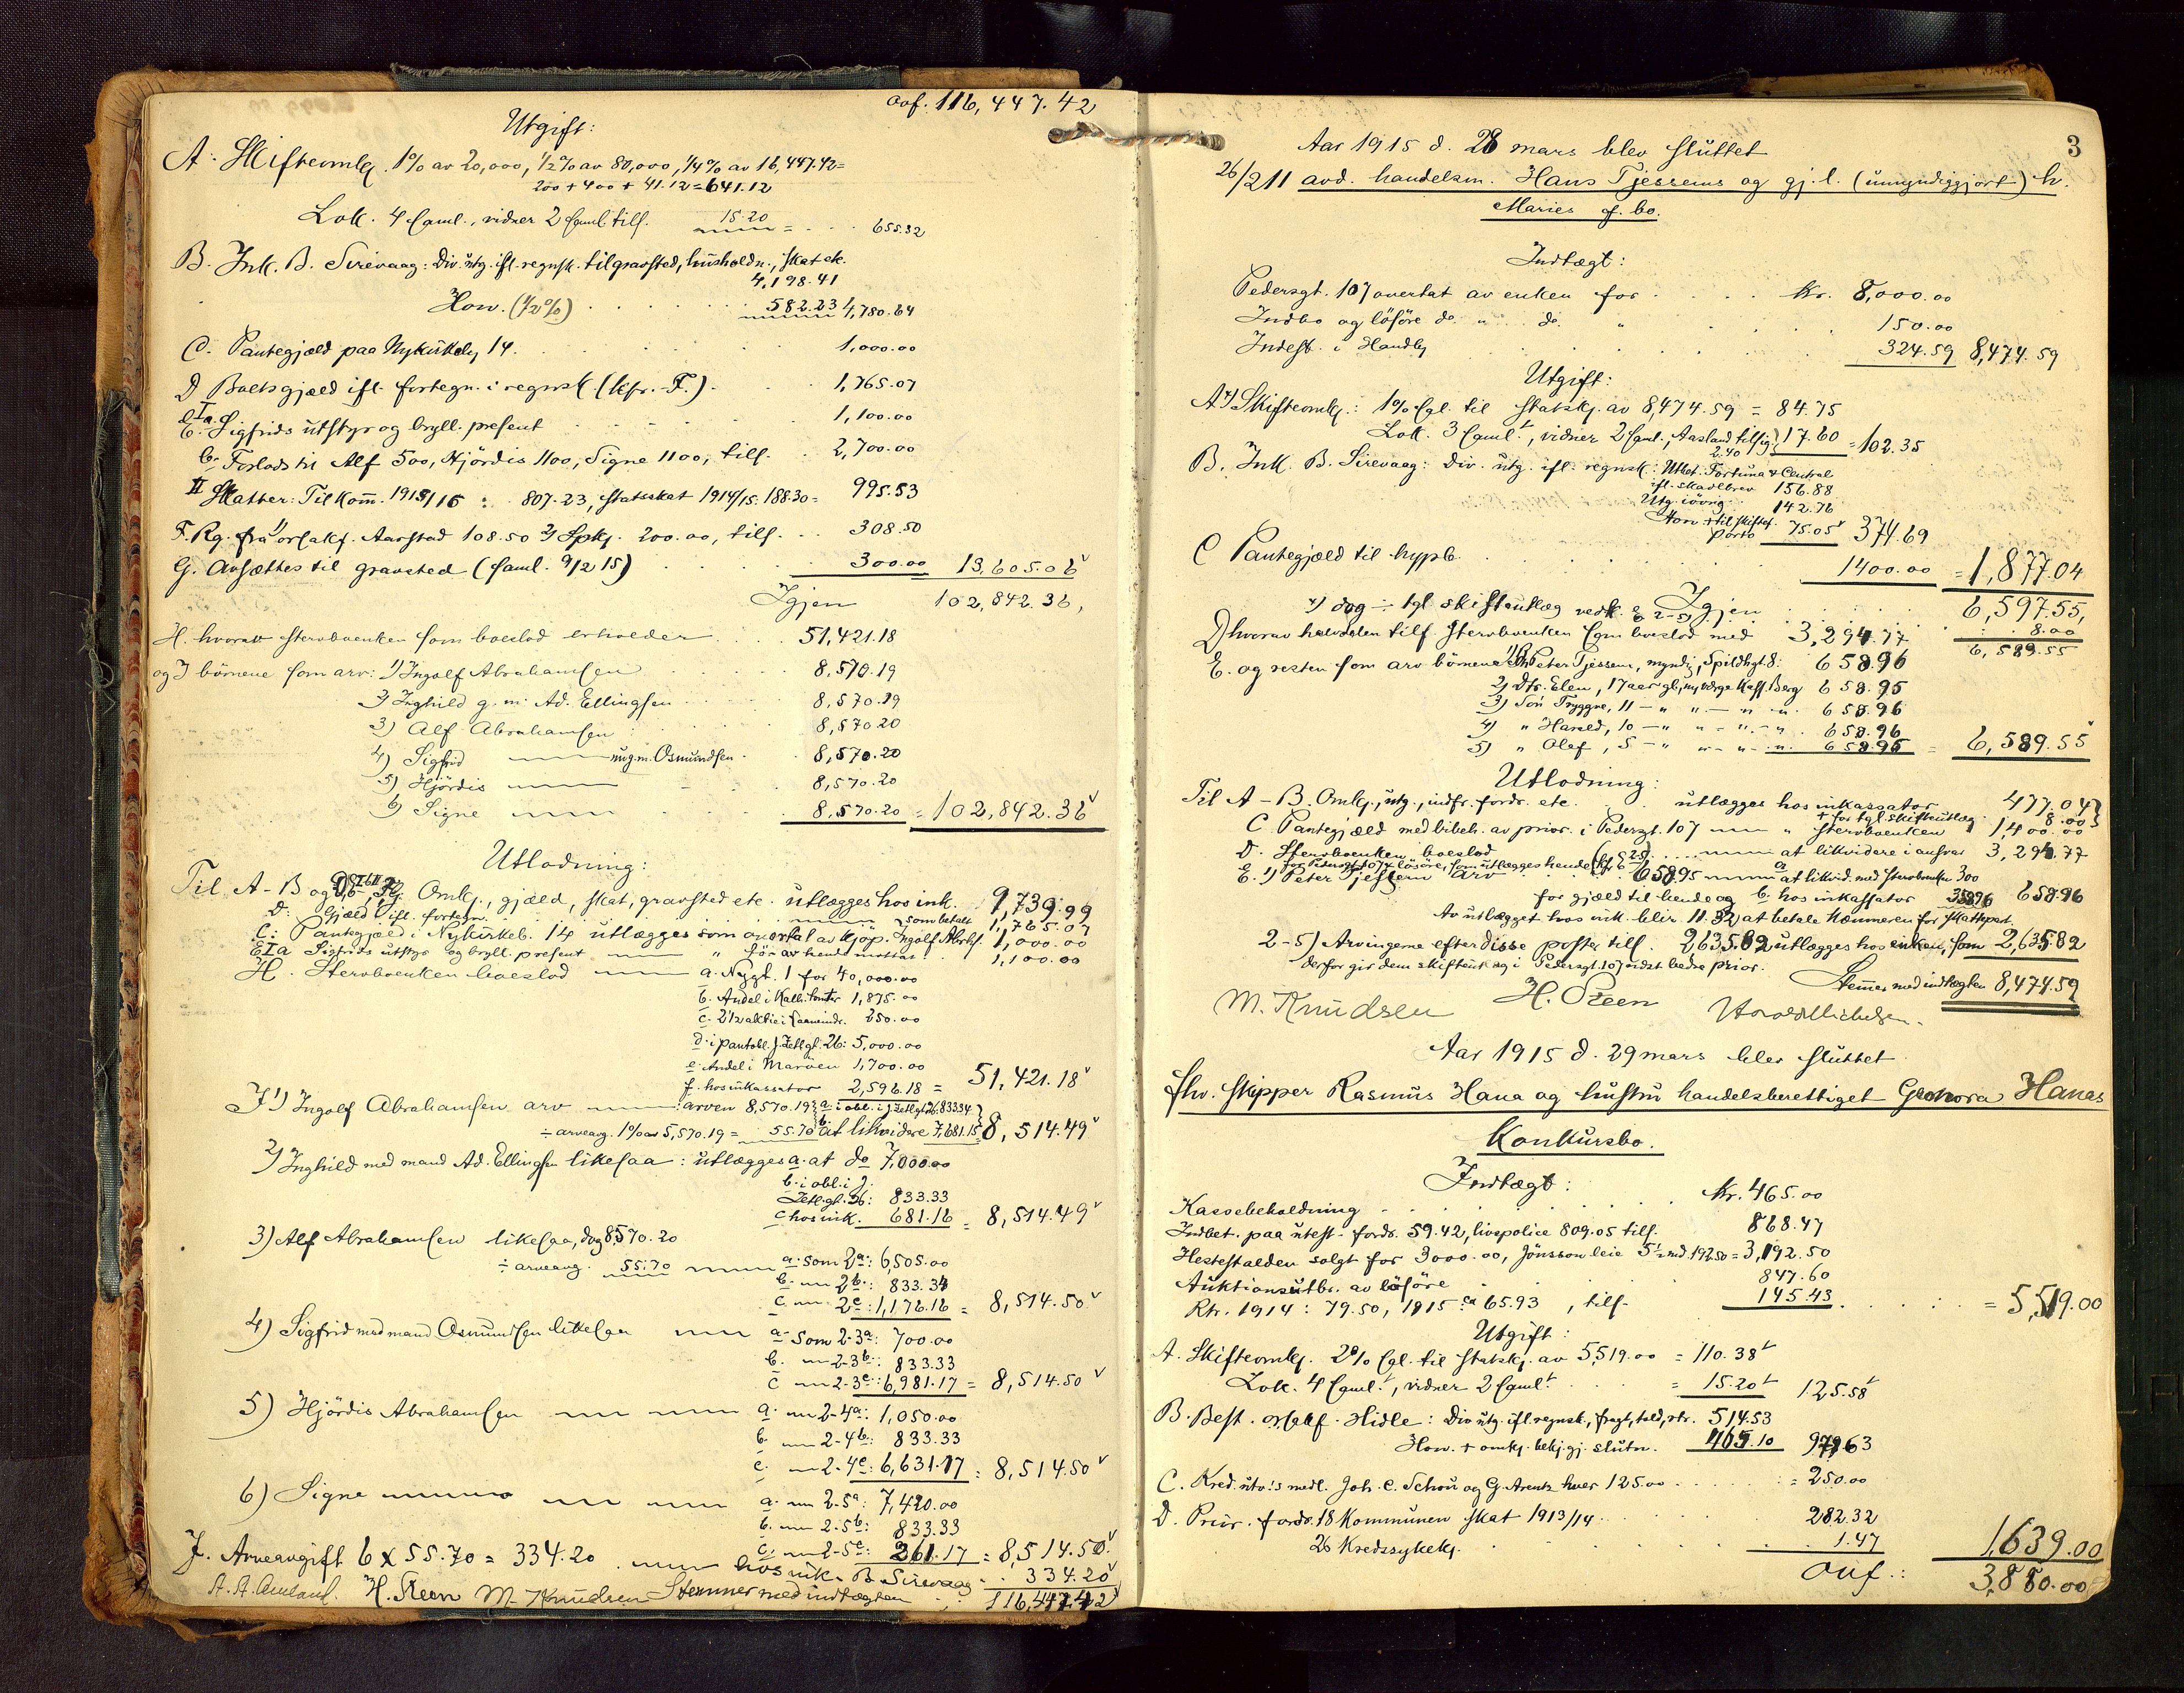 ovf. 116,447.42
Utgift:
A. Skifteomk. 1% av 20,000, 1/2% av 80,000, 1/4% av 16,447.42=
200 + 400 + 41.12 = 641.12
Lok. 4 saml., vidner 2 saml. tils. 15.20 = 655.32
B. Ink. B. Sirevaag: Div. utg. ifl. regnsk. til gravsted, husholdn., skat etc.
4,198.41
Hon. (1/2%) 582.23 4,780.64
C. Pantegjæld paa Nykirkebg 14. 1,000.00
D Boets gjæld ifl. fortegn. i regnsk (kfr. F.) 1,765.07
E. I a. Sigfrids utstyr og bryll. present 1,100.00
b. Forlods til Alf 500, Hjördis 1100, Signe 1100, tils. 2,700.00
II Skatter: Til Kom. 1915/16 : 807.23, statsskat 1914/15: 188.30 = 995.53
F. Rg. fra 1) orsakf. Aarstad 108.50 2) Spkj. 200.00, tils. 308.50
G. Avsættes til gravsted (saml. 9/2 15) 300.00 13,605.06
Igjen 102,842.36,
H. hvorav stervboenken som boeslod erholder 51,421.18
og I börnene som arv: 1) Ingolf Abrahamsen 8,570.19
2) Inghild g. m. Ad. Ellingsen 8,570.19
3) Alf Abrahamsen 8,570.20
4) Sigfrid nu g.m. Osmundsen 8,570.20
5) Hjördis 8,570.20
6) Signe 8,570.20 = 102,842.36
Utlodning:
Til A - B og Omk., gjæld, skat, gravsted etc. utlægges hos ink. 9,739.99
D: Gjæld ifl. fortegn. som betalt 1,765.07
C: Pantegjæld i Nykirkeb. 14 utlægges som overtat av kjöp. Ingolf Abrhs. 1,000.00
E I a Sigfrids utstyr og bryll. present " før av hende mottat 1,100.00
H. Stervboenken boeslod a. Nygt. 1 for 40,000.00
b. Andel i 1,875.00
c. 2 1/2 aktie i 250.00
d. i pantobl. J. Zetl.gt. 26: 5,000.00
e. Andel i Maröen 1,700.00
f. hos inkassator 2,596.18 = 51,421.18
I 1) Ingolf Abrahamsen arv : arven 8,570.19 a. i obl. i J. Zetlgt 26: 833.34
÷ arveavg. 1% av 5,570.19 = 55.70 b. at likvidere 7,681.15 8,514.49
2) Inghild med mand Ad. Ellingsen likesaa : utlægges a. at do 7,000.00
b. i obl. i J.
Zetl.gt. 26: 833.33
c hos ink. 681.16 = 8,514.49
3) Alf Abrahamsen likesaa, dog 8,570.20
÷ arveavg. 55.70 a. som 2a: 6,505.00
b. 2b: 833.34
c. 2c: 1,176.16 = 8,514.50
4) Sigfrid med mand Osmundsen likesaa a. som 2-3a: 700.00
b. 2-3b: 833.33
c 2-3c: 6,981.17 = 8,514.50
5) Hjördis Abrahamsen a. 2-4a: 1,050.00
b. 2-4b: 833.33
c. 2-4c: 6,631.17 = 8,514.50
6) Signe a. 2-5a: 7,420.00
b. 2-5b: 833.33
c. 2-5c: 261.17 = 8,514.50
J. Arveavgift 6 x 55.70 = 334.20 hos ink. B. Sirevaag 334.20
H. Steen M. Knudsen Stemmer med indtægten 116,447.42
3
Aar 1915 d. 28 mars blev sluttet
26/211 avd. handelsm. Hans Tjessems og gj. l. (umyndiggjort) h.
Maries f. bo.
Indtægt:
Pedersgt. 107 overtat av enken for Kr. 8,000.00
Indbo og lösöre do. " do. " 150.00
Indest. i Handby 324.59 8,474.59
Utgift:
A x) Skifteomk.: 1% sgl. til statskj. av 8,474.59 = 84.75
Lok. 3 saml., vidner 2 saml., Aasland tilsig. 2.40 17.60 = 102.35
B. Ink. B. Sirevaag: Div. utg. ifl. regnsk: Utbet. Fortuna & Central
ifl. skadebrev 156.88
Utg. iövrig 142.76
Hon + til skiftef.
porto 75.05 374.69
C Pantegjæld til hypb. 1400.00 = 1,877.04
Igjen 6,597.55,
x) dog ÷ tgl. skifteutlæg vedk. E 2-5) 8.00
D) hvorav halvdelen tilf. stervboenken som boeslod med 3,294.77 6,589.55
E. og resten som arv börnene 1) Peter Tjessem, myndig, Spildhgt. 8: 658.96
2) Dtr. Elen, 17 aar gl., ny værge Kass. Berg 658.95
3) Sön Tryggve, 11 — " " — " " 658.96
4) " Harald, 10 — " " — " " 658.96
5) " Olaf, 5 — " " — " " 658.95 = 6,589.55
Utlodning:
Til A - B. Omk., utg., indfr. fordr. etc. utlægges hos inkassator 477.04
+ for tgl. skifteutlæg 8.00
C. Pantegjæld med bibeh. av prior. i Pedersgt. 107 " stervboenken 1,400.00
D. Stervboenken boeslod at likvidere i ansvar 3,294.77
for Pedersgt. 107 & lösöre, som utlægges hende (kf. E 2-5)
E. 1) Peter Tjessem arv 658.95 a at likvid. med stervboenken 300
for gjæld til hende og b. hos inkassator 358.96 658.96
Av utlægget hos ink. blir 11.32 at betale Kæmneren for skatterest.
2-5) Arvingerne efter disse poster tils. 2,635.82 utlægges hos enken, som 2,635.82
derfor gir dem skifteutlæg i Pedersgt. 107 sidst bedre prior.
Stemmer med indtægten 8,474.59
M. Knudsen H. Steen
Aar 1915 d. 29 mars blev sluttet
fhv. skipper Rasmus Hana og hustru handelsberettiget Hanas
Konkursbo.
Indtægt:
Kassebeholdning Kr. 465.00
Indbet. paa utest. fordr. 59.42, livspolice 809.05 tils. 868.47
Hestestalden solgt for 3000.00, Jönsson leie 5 1/2 md. 192.50 = 3,192.50
Auktionsutbr. av lösöre 847.60
Rtr. 1914 : 79.50, 1915 65.93, tils. 145.43 = 5,519.00
Utgift:
A. Skifteomk. 2% sgl. til statskj. av 5,519.00 = 110.38
Lok. 4 saml., vidner 2 saml. = 15.20 125.58
B. Best. orsakf. Hidle: Div utg. ifl. regnsk., fragt, told, rtr. 514.53
Hon. + omk. bekj. gj. slutn. 465.10 979.63
C. Kred. utv.'s medl. Joh. C. Schou og G. Arentz hver 125.00 = 250.00
D. Prior. fordr. 18 Kommunen skat 1913/14 282.32
26 Kredssykek. 1.47 1,639.00
Ovf.: 3,880.00